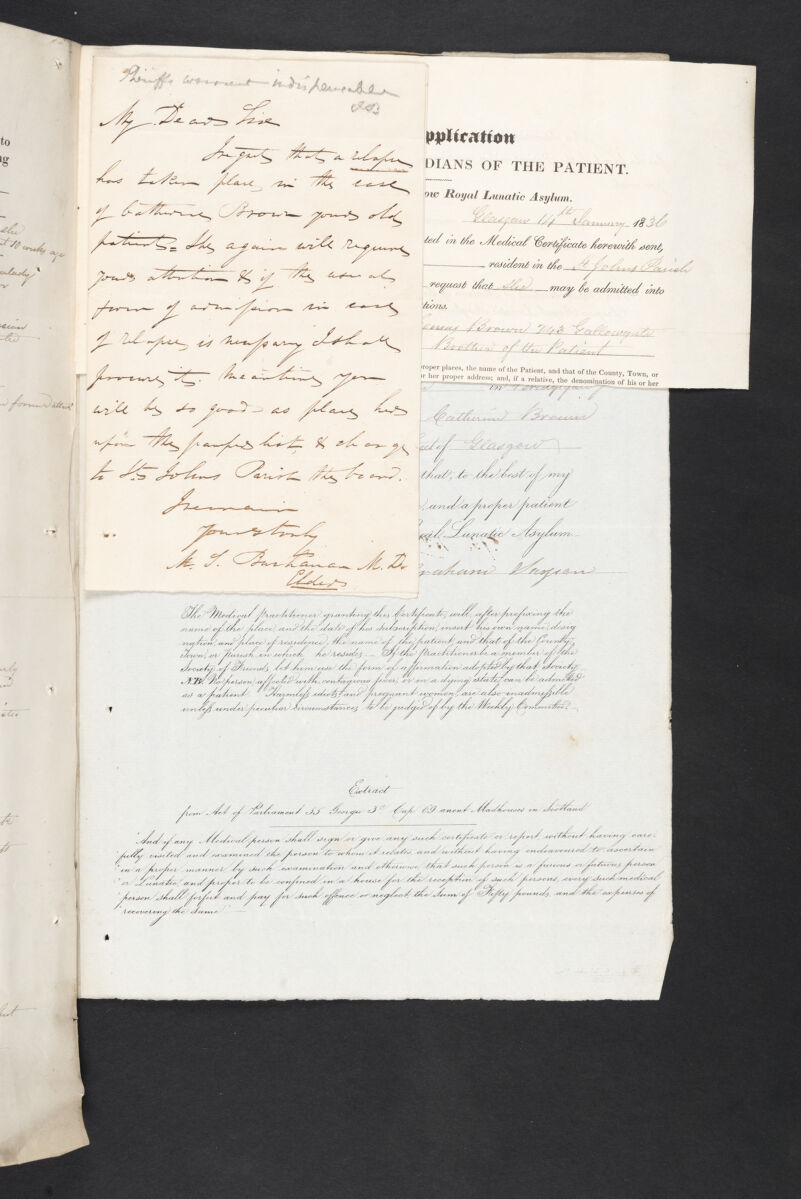 Sheriffs warrant indispensable
My Dear Sir
I regret that a relapse
has taken place in the case
of Catherine Brown your old
patient = She again will require
your attention & if the usual
form of admission in case
of relapse is necessary I shall
procure it. Meantime you
will be so good as place her
upon the paupers list, & charge
to St. Johns Parish the board.
I remain
yours truly
M. S. Buchanan M.D.
Elder
pplication
DIANS OF THE PATIENT.
ow Royal Lunatic Asylum.
Glasgow 14th January 1836
ted in the Medical Certificate herewith sent,
resident in the St Johns Parish
request that She may be admitted into
tions.
Brown 243 Gallowgate
Brother of the Patient
roper places, the name of the Patient, and that of the County, Town, or
r her proper address; and, if a relative, the denomination of his or her
Catherine Brown
of Glasgow
that, to the best of my
, and a proper patient
Lunatic Asylum
The Medical Practitioner granting this Certificate, will, after prefixing the
name of the place, and the date of his subscription, insert his own name, desig
nation, and place of residence, the name of the patient and that of the County,
Town, or Parish in which he resides. — If the Practitioner be a member of the
Society of Friends, let him use the form of affirmation adopted by that Society
N.B. No person affected with contagious fever, or in a dying state, can be admitted
as a patient. Harmless idiots and pregnant women, are also inadmissible
unless under peculiar circumstances to be judged of by the Weekly Committee.
Extract
from Act of Parliament 55 Georgii 3d Cap 69 anent Madhouses in Scotland
"And if any Medical person shall sign or give any such certificate or report without having care-
fully visited and examined the person to whom it relates, and without having endeavoured to ascertain
in a proper manner by such examination and otherwise that such person is a furious or fatuous person
or Lunatic, and proper to be confined in a house for the reception of such persons, every such medical
person shall forfeit and pay for such offence or neglect, the sum of Fifty pounds, and the expenses of
recovering the same" —